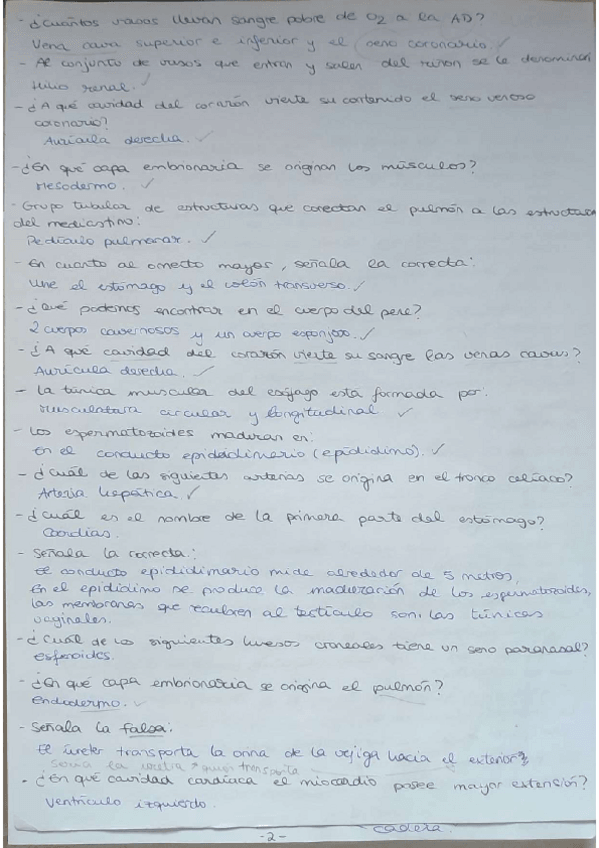 - ¿Cuántos vasos llevan sangre pobre de O2 a la AD?
Vena cava superior e inferior y el seno coronario. ✓
- Al conjunto de vasos que entran y salen del riñon se le denomina:
Hilio renal. ✓
- ¿A qué cavidad del corazón vierte su contenido el seno venoso
coronario?
Aurícula derecha. ✓
- ¿En qué capa embrionaria se originan los músculos?
Mesodermo. ✓
- Grupo tubular de estructuras que conectan el pulmón a las estructuras
del mediastino:
Pedículo pulmonar. ✓
- En cuanto al omento mayor, señala la correcta:
Une el estómago y el colón transverso. ✓
- ¿Qué podemos encontrar en el cuerpo del pene?
2 cuerpos cavernosos y un cuerpo esponjoso. ✓
- ¿A qué cavidad del corazón vierte su sangre las venas cavas?
Aurícula derecha. ✓
- La túnica muscular del esófago está formada por:
Musculatura circular y longitudinal ✓
- Los espermatozoides maduran en:
En el conducto epididimario (epidídimo). ✓
- ¿Cuál de las siguientes arterias se origina en el tronco celíaco?
Arteria hepática. ✓
- ¿Cuál es el nombre de la primera parte del estómago?
Cardias.
- Señala la correcta:
El conducto epididimario mide alrededor de 5 metros,
En el epidídimo se produce la maduración de los espermatozoides,
las membranas que recubren al testículo son las túnicas
vaginales.
- ¿Cuál de los siguientes huesos craneales tiene un seno paranasal?
Esfenoides.
- ¿En qué capa embrionaria se origina el pulmón?
Endodermo. ✓
- Señala la falsa:
El úreter transporta la orina de la vejiga hacia el exterior
Seria la uretra quien transporta
- ¿En qué cavidad cardíaca el miocardio posee mayor extensión?
Ventrículo izquierdo.
-2-
cadera.